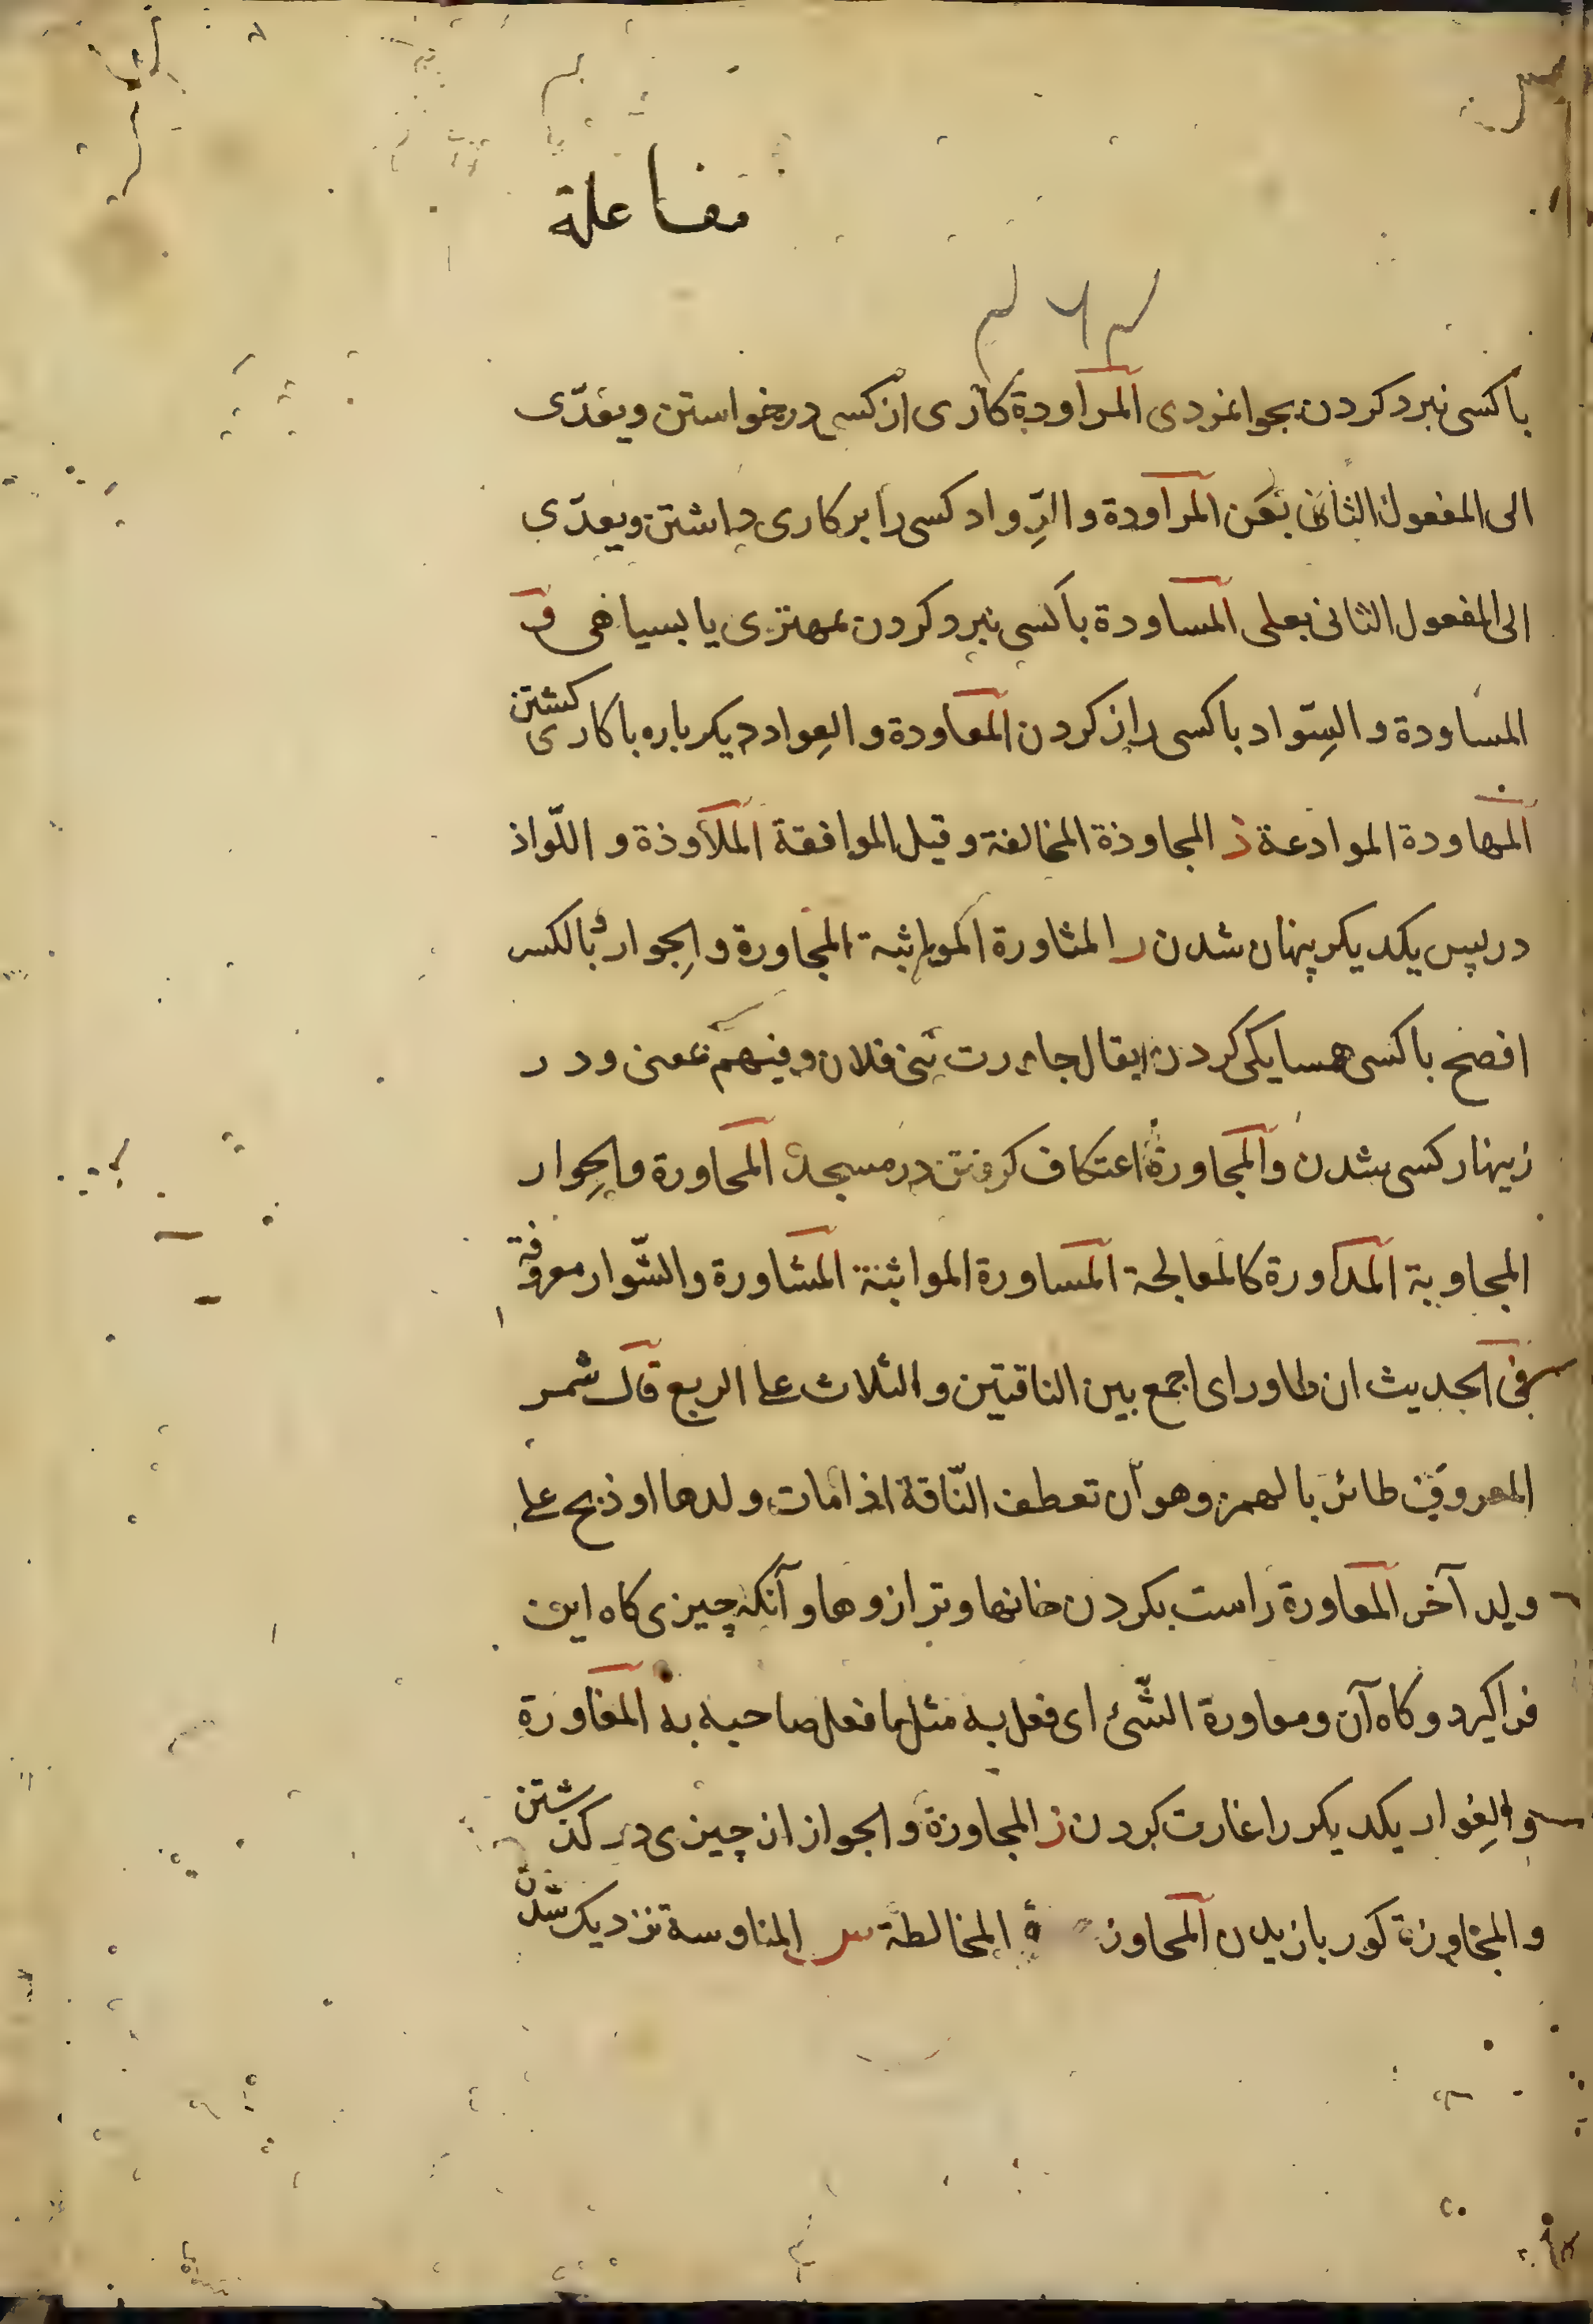 مفاعلة
باکسی نبرد کردن بجوانمردی المراودة کاری از کسی درخواستن ویعدّی
الی المفعول الثانی بعن المراودة والرِّواد کسی را بر کاری داشتن ویعدّی
الی المفعول الثانی بعلی المساودة باکسی نبرد کردن بمهتری یا بسیاهی و
المساودة والسِّواد باکسی راز کردن المعاودة والعِواد دیکر باره با کاری کشتن
المهاودة الموادعة ذ المجاوذة المخالفة وقیل الموافقة الملاوذة واللّواذ
در پس یکدیکر پنهان شدن ر المثاورة المواثبة المجاورة والجِوار وبالکسر
افصح باکسی همسایکی کردن یقال جاورت بنی فلان وفیهم بمعنی ودر
زینهار کسی شدن والمجاورة اعتکاف کرفتن در مسجد المحاورة والحِوار
المجاوبة المدکورة کالمعالجة المساورة المواثبة المشاورة والشّوار معروفة
فی الحدیث ان طاور ای اجمع بین الناقتین والثلاث علی الربع قال شمر
المعروف طائر بالهمز وهو ان تعطف النّاقة اذا مات ولدها او ذبح علی
ولد آخر المعاورة راست بکردن خانها وترازوها وآنکه چیزی کاه این
فرا کیرد وکاه آن ومعاورة الشّیء ای فعل به مثل ما فعل صاحبه به المغاورة
والغِوار یکدیکر را غارت کردن ز المجاوزة والجواز از چیزی در کذشتن
والمجاوزة کور بازیدن المحاوزة المخالطة س المناوسة نزدیک شدن